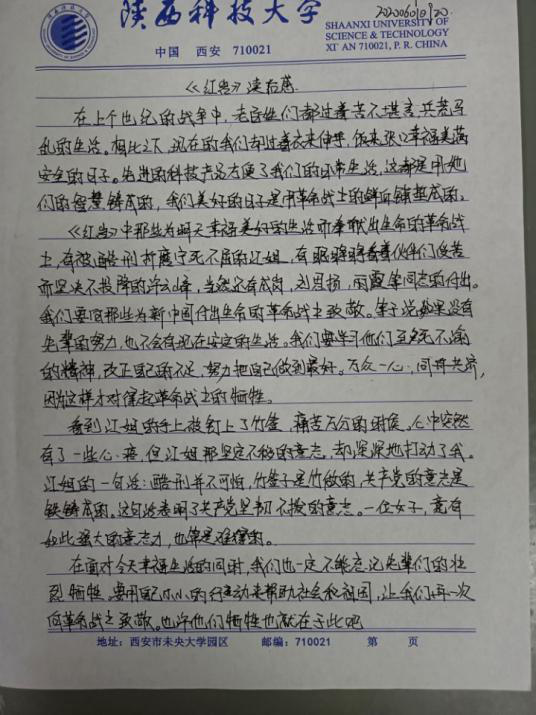 陕西科技大学
202006010920
SHAANXI UNIVERSITY OF
SCIENCE & TECHNOLOGY
XI'AN 710021, P. R. CHINA
中国 西安 710021
《红岩》读后感
在上个世纪的战争中，老百姓们都过着苦不堪言，兵荒马
乱的生活。相比之下，现在的我们却过着衣来伸手，饭来张口幸福美满
安全的日子。先进的科技产品方便了我们的日常生活，这都是用她
们的智慧铸成的，我们美好的日子是用革命战士的鲜血铺垫成的。
《红岩》中那些为明天幸福美好的生活而奉献出生命的革命战
士，有被酷刑折磨宁死不屈的江姐，有眼睁睁看着伙伴们受苦
而坚决不投降的许云峰，当然还有成岗，刘思扬，雨霞等同志的付出。
我们要向那些为新中国付出生命的革命战士致敬。笔者说如果没有
先辈的努力，也不会有现在安定的生活。我们要学习他们至死不渝
的精神，改正自己的不足，努力把自己做到最好。万众一心，同舟共济，
因为这样才对得起革命战士的牺牲。
看到江姐的手上被钉上了竹签，痛苦万分的时候。心中突然
有了一些心疼，但江姐那坚定不移的意志，却深深地打动了我。
江姐的一句话：酷刑并不可怕，竹签子是竹做的，共产党的意志是
铁铸成的。这句话表明了共产党坚韧不拔的意志。一位女子，竟有
如此强大的意志力，也算是难得的。
在面对今天幸福生活的同时，我们也一定不能忘记先辈们的壮
烈牺牲。要用自己小小的行动来帮助社会和祖国，让我们再一次
向革命战士致敬。也许他们牺牲也就在于此吧
地址：西安市未央大学园区 邮编：710021 第 页